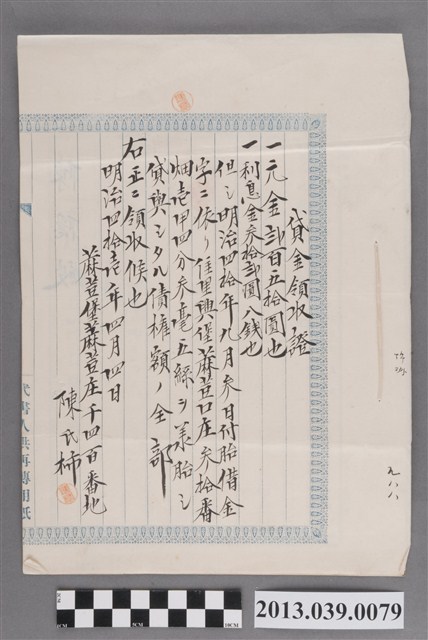 貸金領收證
一元金弍百五拾圓也
一利息金参拾弍圓八銭也
但シ明治四拾年九月参日付胎借金
字ニ依リ佳里興堡蔴荳口庄参拾番
畑壱甲四分参毫五絲ヲ差胎シ
貸與シタル債權額ノ全部
右正ニ領收候也
明治四拾壱年四月四日
蔴荳堡蔴荳庄千四百番地
陳氏柿
九八八
代書人洪再傳用紙
5CM
10CM
2013.039.0079